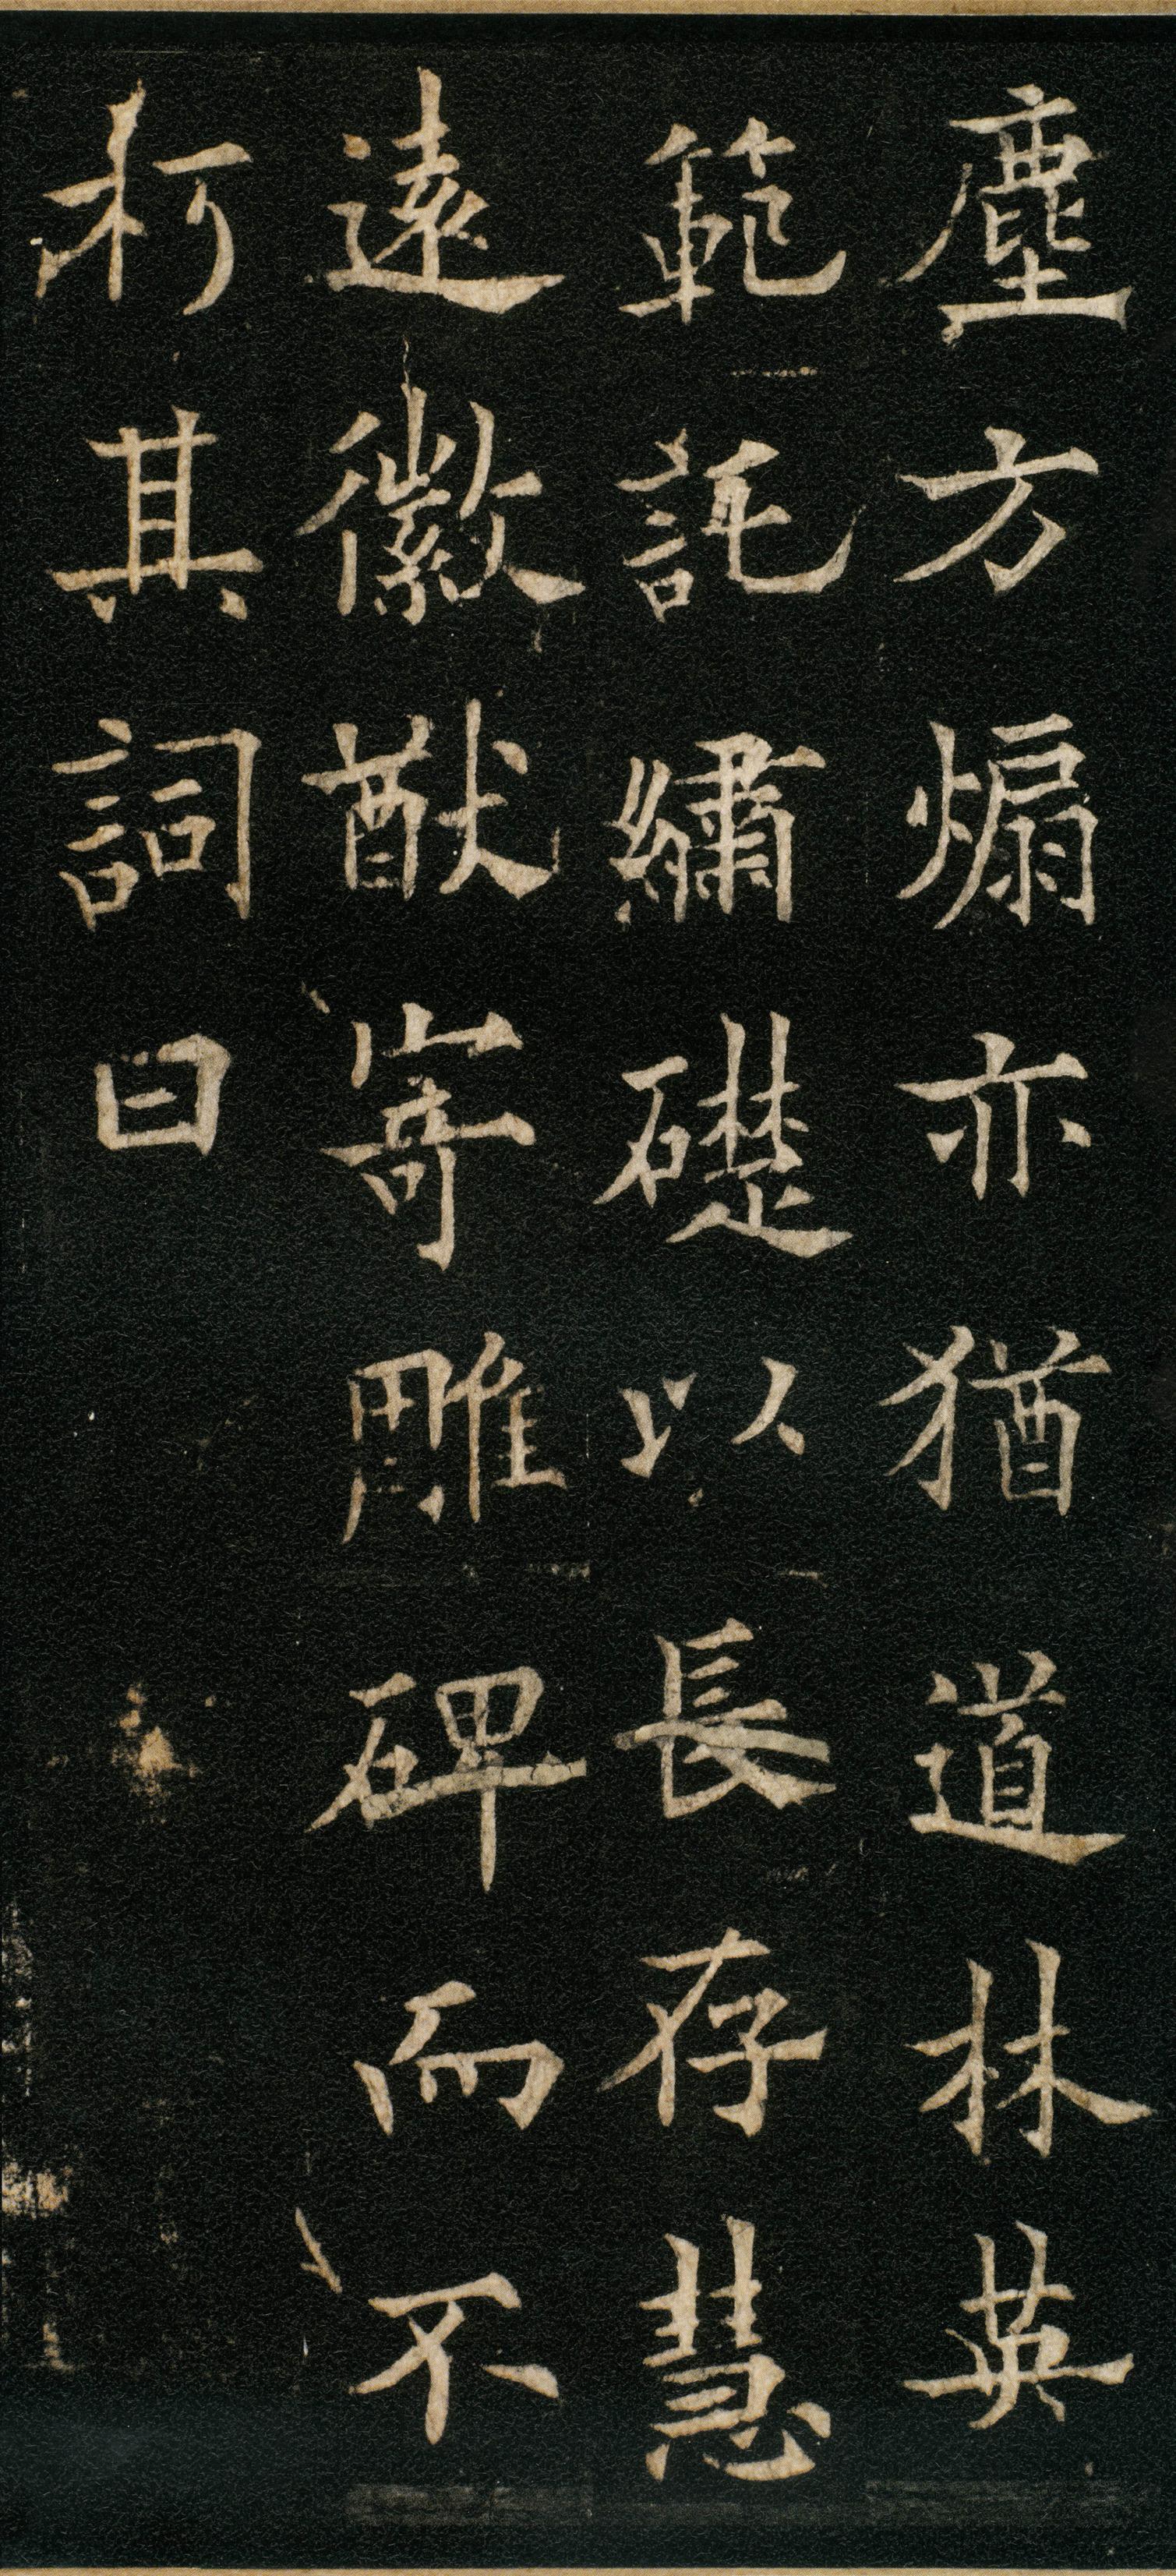 塵方煽亦猶道林英
範託繡礎以長存慧
遠徽猷寄雕碑而不
朽其詞曰